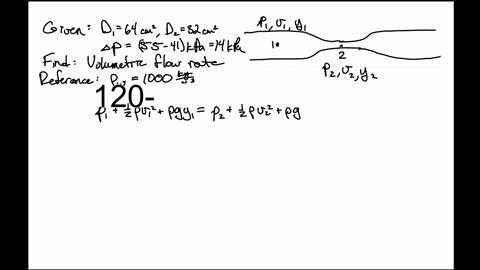 Given: D₁=64 cm², D₂=32 cm²
ΔP = (55-41) kPa = 14 kPa
Find: Volumetric flow rate
Reference: ρw = 1000
120-
P₁ + ½ρv₁² + ρgy₁ = P₂ + ½ρv₂² + ρg
P₁, v₁, y₁
1
2
P₂, v₂, y₂